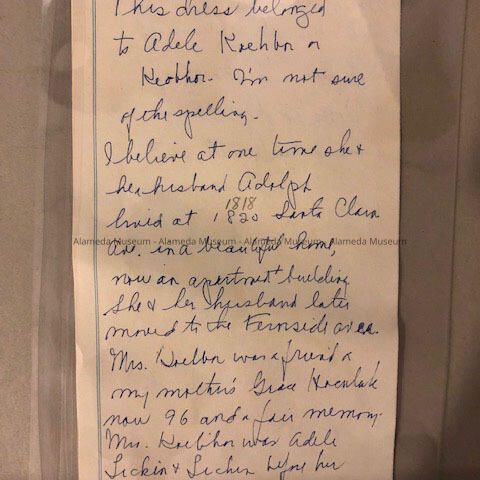 This dress belonged
to Adele Koehbor or
Keobhor. I'm not sure
of the spelling.
I believe at one time she &
her husband Adolph
1818
lived at 1820 Santa Clara
Alameda Museum - Alameda Museum - Alameda Museum - Alameda Museum
Ave. in a beautiful home,
now an apartment building
She & her husband later
moved to the Fernside area.
Mrs. was a friend of
my mother's Grace
now 96 and a fair memory.
Mrs. was Adele
before her